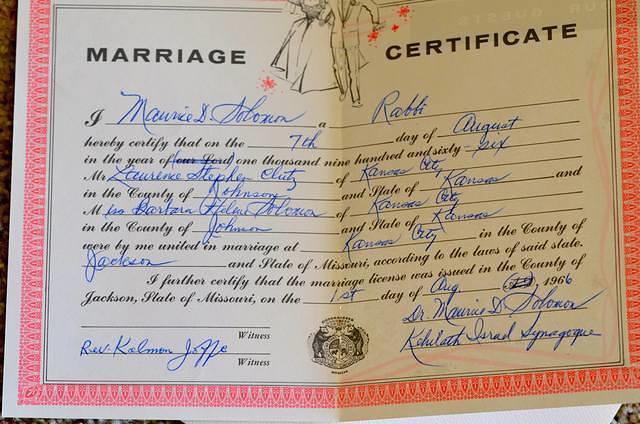 MARRIAGE CERTIFICATE
I Maurice D. Solomon a Rabbi
hereby certify that on the 7th day of August
in the year of our Lord one thousand nine hundred and sixty-six
Mr Laurence Stephen of Kansas City
in the County of Johnson and State of Kansas and
Miss Barbara Helen Solomon of Kansas City
in the County of Johnson and State of Kansas
were by me united in marriage at Kansas City in the County of
Jackson and State of Missouri, according to the laws of said state.
I further certify that the marriage license was issued in the County of
Jackson, State of Missouri, on the 1st day of Aug 1966
Dr. Maurice D. Solomon
Witness
Kehilath Israel Synagogue
Rev. Kalmon Joffe
Witness